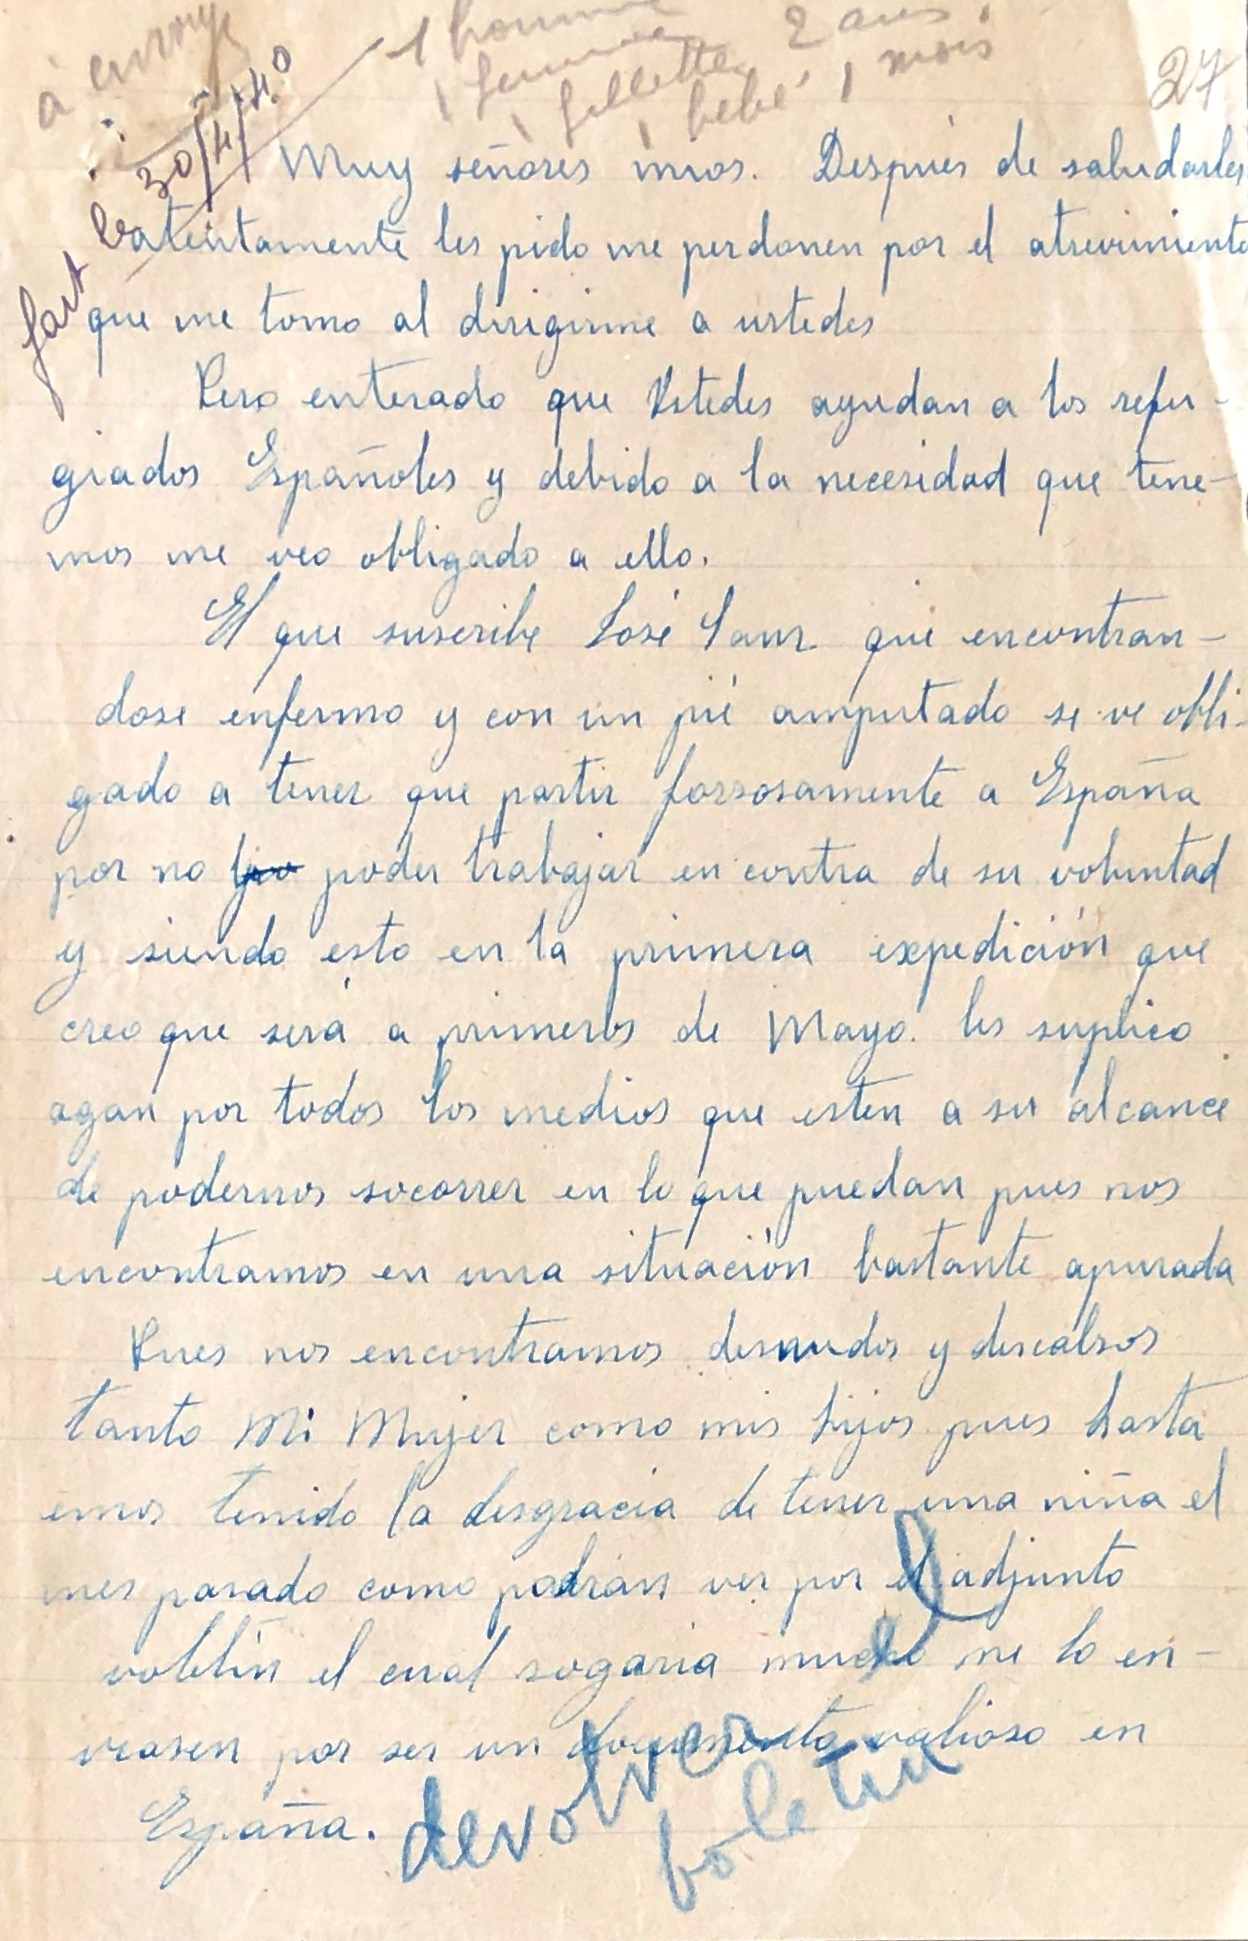 à envoye
1 homme
1 femme
1 fillette 2 ans
1 bébé 1 mois
27
fait le 30/4/40
Muy señores mios. Después de saludarles
atentamente les pido me perdonen por el atrevimiento
que me tomo al dirigirme a ustedes
Pero enterado que Ustedes ayudan a los refu-
giados Españoles y debido a la necesidad que tene-
mos me veo obligado a ello.
El que suscribe José Sanz que encontran-
dose enfermo y con un pié amputado se ve obli-
gado a tener que partir forsosamente a España
por no poder trabajar en contra de su voluntad
y siendo esto en la primera expedición que
creo que será a primeros de Mayo. les suplico
agan por todos los medios que esten a su alcance
de podernos socorrer en lo que puedan pues nos
encontramos en una situación bastante apurada
Pues nos encontramos desnudos y descalsos
tanto Mi Mujer como mis hijos pues hasta
emos tenido la desgracia de tener una niña el
mes pasado como podrán ver por el adjunto
voletin el cual rogaria mucho me lo en-
viasen por ser un documento valioso en
España.
devolver
boletin